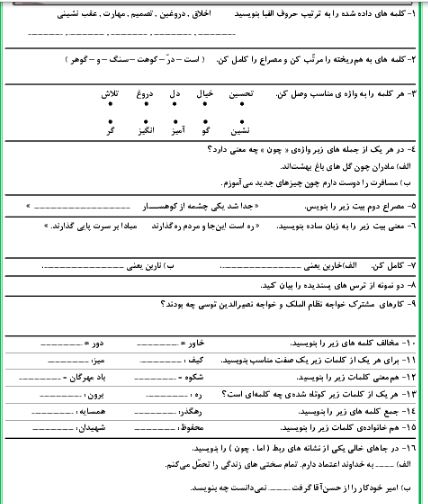 ۱- کلمه های داده شده را به ترتیب حروف الفبا بنویسید    اخلاق ، دروغین ، تصمیم ، مهارت ، عقب نشینی
۲- کلمه های به هم ریخته را مرتّب کن و مصراع را کامل کن.    ( است – درّ – کوهت – سنگ – و – گوهر )
۳- هر کلمه را به واژه ی مناسب وصل کن.    تحسین    خیال    دل    دروغ    تلاش
نشین    گو    آمیز    انگیز    گر
۴- در هر یک از جمله های زیر واژه‌ی « چون » چه معنی دارد؟
الف) مادران چون گل های باغ بهشت‌اند.
ب) مسافرت را دوست دارم چون چیزهای جدید می آموزم.
۵- مصراع دوم بیت زیر را بنویس.    « جدا شد یکی چشمه از کوهسـار ________ »
۶- معنی بیت زیر را به زبان ساده بنویسید.    « ره است این‌جا و مردم ره‌گذارند    مبادا بر سرت پایی گذارند. »
۷- کامل کن.    الف)خاربن یعنی ________.    ب) ناربن یعنی ________.
۸- دو نمونه از ترس های پسندیده را بیان کنید.
۹- کارهای مشترک خواجه نظام الملک و خواجه نصیرالدین توسی چه بودند؟
۱۰- مخالف کلمه های زیر را بنویسید.    خاور = ________    دور = ________
۱۱- برای هر یک از کلمات زیر یک صفت مناسب بنویسید.    کیف : ________    میز: ________
۱۲- هم‌معنی کلمات زیر را بنویسید.    شکوه - ________    باد مهرگان - ________
۱۳- هر یک از کلمات زیر کوتاه شده‌ی چه کلمه‌ای است؟    ره : ________    برون: ________
۱۴- جمع کلمه های زیر را بنویسید.    رهگذر: ________    همسایه: ________
۱۵- هم خانواده‌ی کلمات زیر را بنویسید.    محفوظ: ________    شهیدان: ________
۱۶- در جاهای خالی یکی از نشانه های ربط ( اما ، چون ) را بنویسید.
الف) ____ به خداوند اعتماد دارم. تمام سختی های زندگی را تحمّل می‌کنم.
ب) امیر خودکار را از حسن‌آقا گرفت ____ نمی‌دانست چه بنویسد.